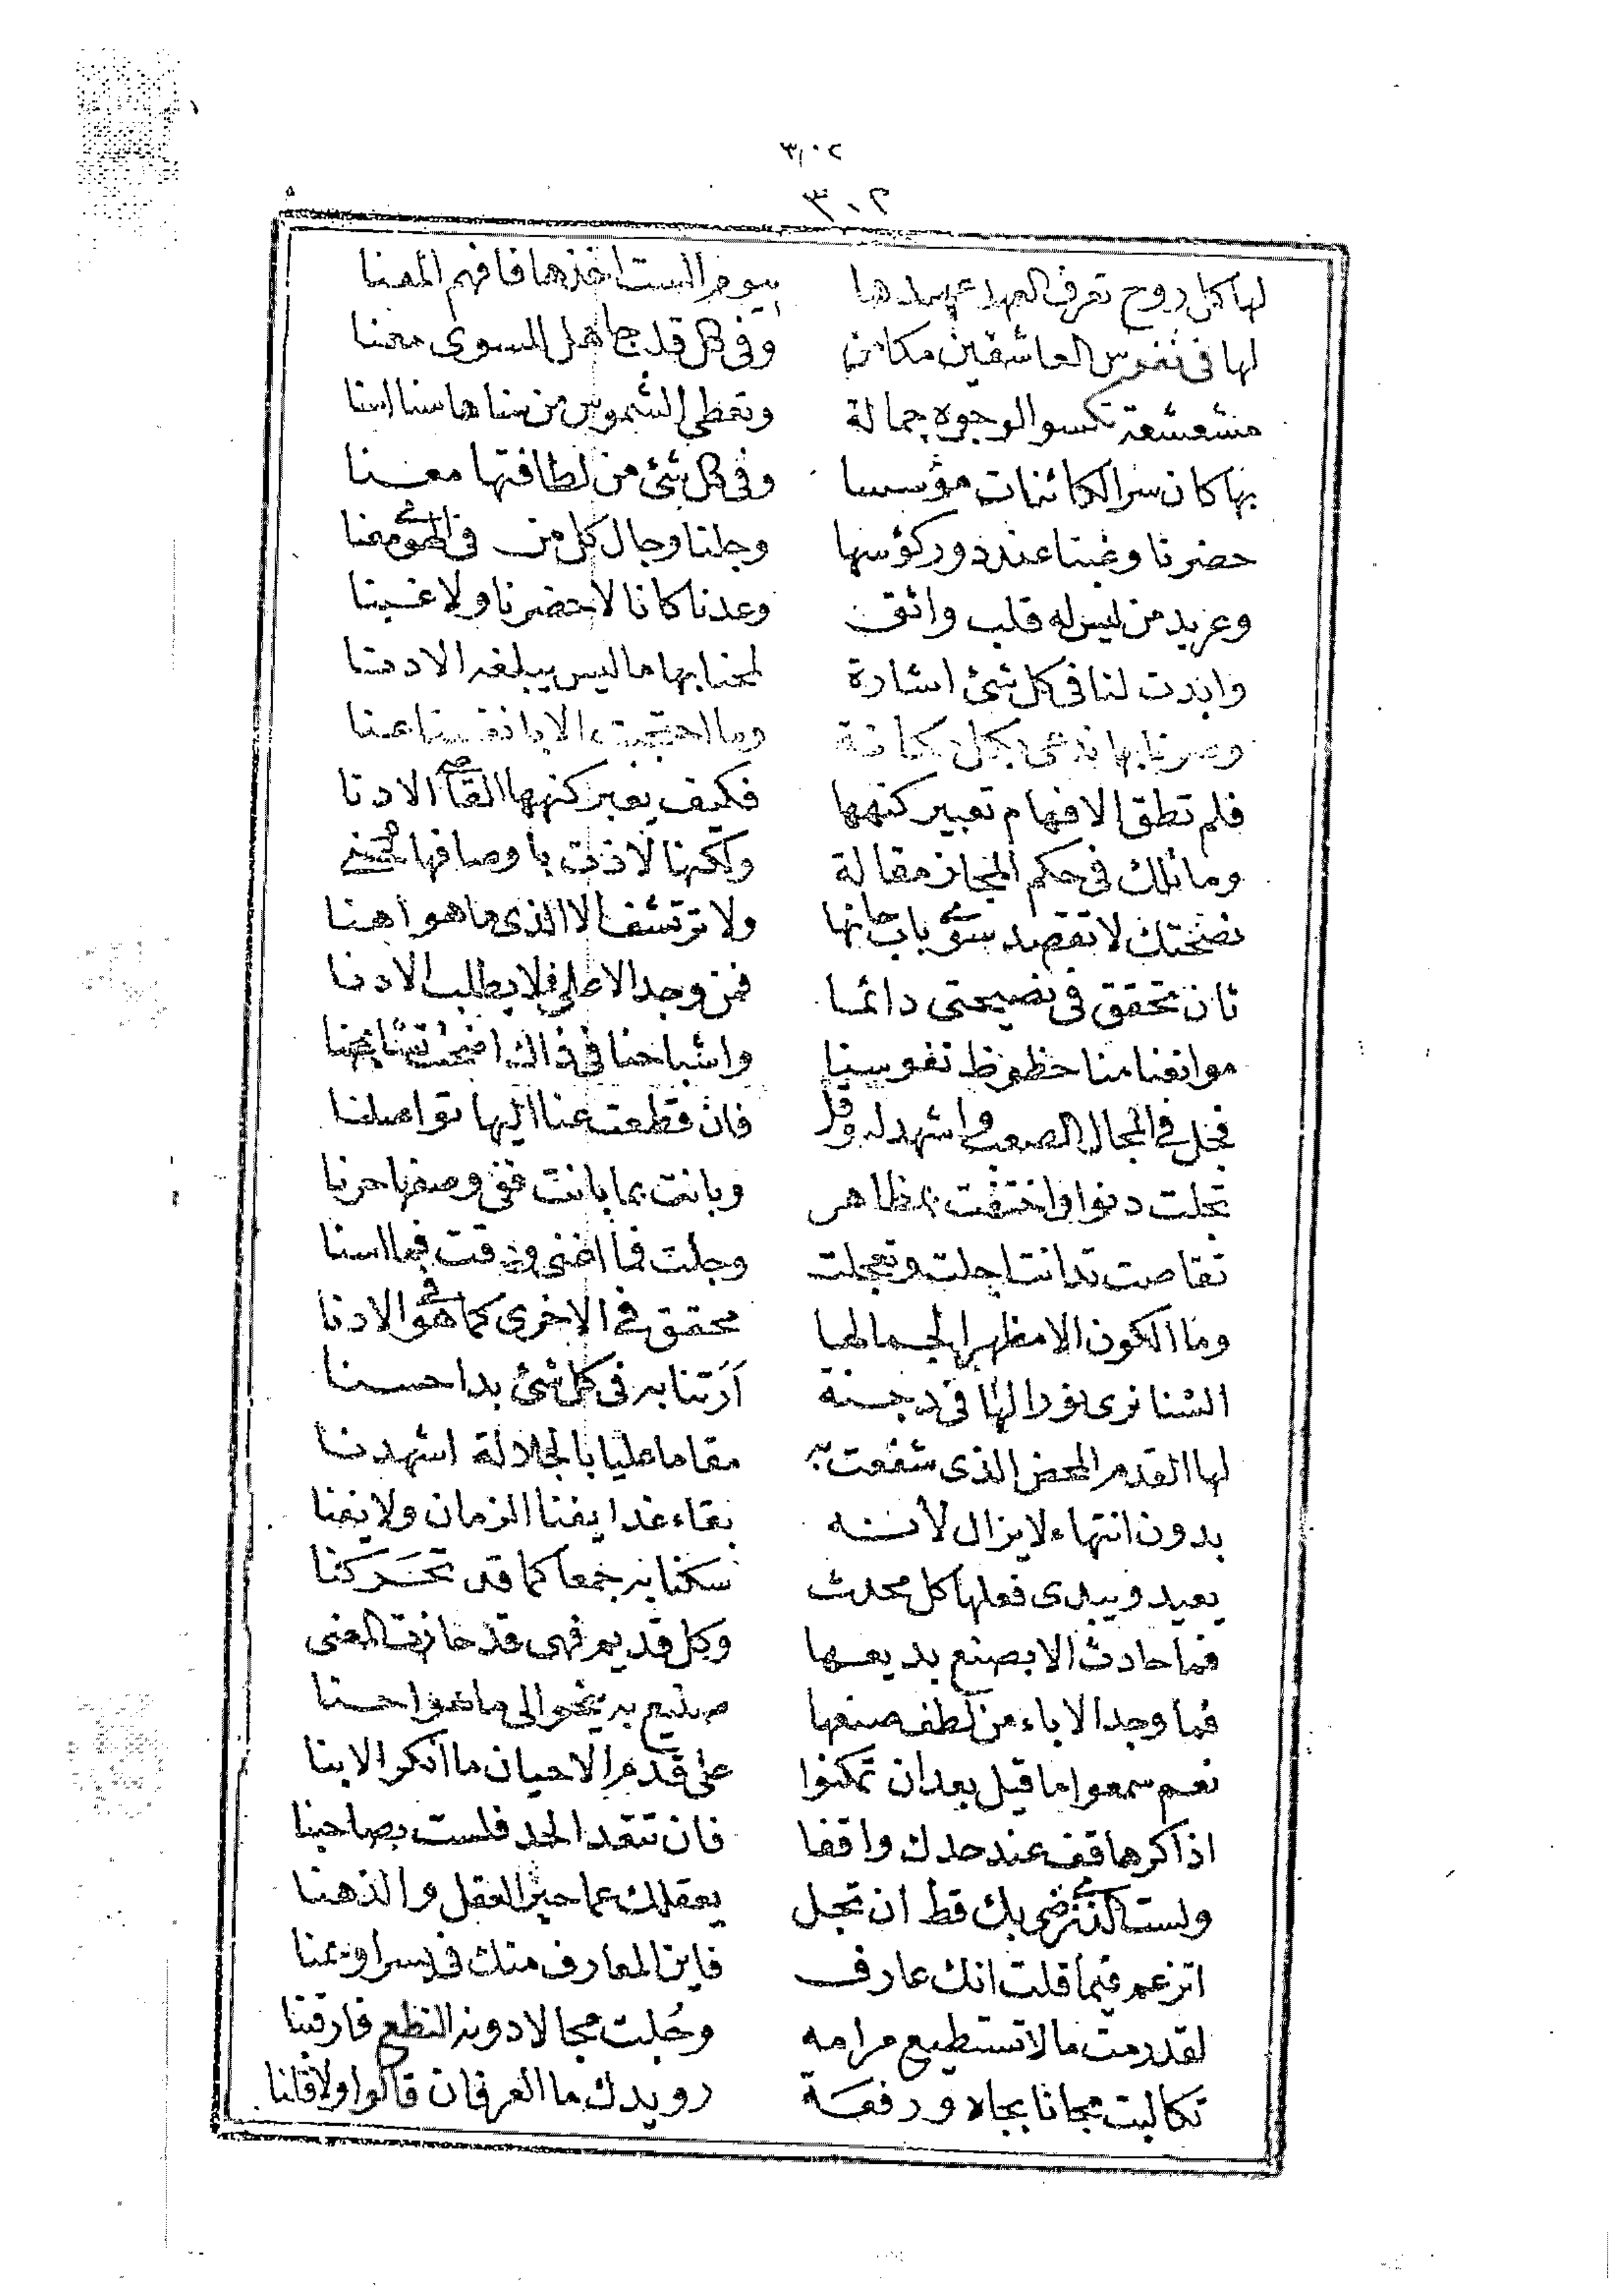 ٣٠٢
٣٠٢
لها كل روح تعرف العهد عهدها بيوم الست اخذها فافهم المعنا
لها فى نفوس العاشقين مكامن وفى كل قد جاهل السوى معنا
مشعشعة تكسو الوجوه جمالة وتعطى الشموس من سناها سنا اسنا
بها كان سر الكائنات مؤسسا وفى كل شئ من لطافتها معنا
حضرنا وغبنا عند دور كؤسها وجلنا وجال كل من فى معنا
وعربد من ليس له قلب واثق وعدنا كانا لا حضرنا ولا غبنا
وابدت لنا فى كل شئ اشارة لمحنا بها ما ليس يبلغه الا دهنا
وصرنا بها ندعى بكل وما احتجبت الا بانفسنا عنا
فلم تطق الافهام تعبير كنهها فكيف يعبر كنهها الادنا
وما تلك فى حكم المجاز مقالة ولكنها لاذت باوصافها
نصحتك لا تقصد سوى باب حانها ولا ترتشف الا الذى ما هو اهنا
تان تحقق فى نصيحتى دائما فمن وجد الاعلى فلا يطلب الادنا
موانعنا منا حظوظ نفوسنا واشباحنا فى ذاك
فجل فى المجال الصعب واشهد له وقل فان قطعت عنا اليها تواصلنا
تجلت دنوا واختفت بمظاهر وبانت بما بانت ففى وصفها حرنا
تقاصت تدانت اجلت وتعجلت وجلت فما اغنى ورقت فما اسنا
وما الكون الا مظهرا لجمالها محقق فى الاخرى كما هو فى الادنا
السنا نرى نورا لها فى دجنة ارتنا به فى كل شئ بدا حسنا
لها القدم المحض الذى شفعت به مقاما عليا بالجلالة اشهدنا
بدون انتهاء لا يزال لانه بقاء غدا يفنا الزمان ولا يفنا
يعيد ويبدى فعلها كل محدث سكنا به جمعا كما قد تحركنا
فما حادث الا بصنع بديعها وكل قديم فهى قد حازت المغنى
فما وجد الاباء من لطف صنعها صنيع به ينحو الى ما هو احسنا
نعم سمعوا ما قيل بعد ان تمكنوا على قدم الاحيان ما انكر الابنا
اذاكرها قف عند حدك واقفا فان تتعد الحد فلست بصاحبنا
ولست لكى نرضى بك قط ان تجل بعقلك عما حير العقل والذهنا
اتزعم فيما قلت انك عارف فاين المعارف منك فى يسر او عنا
لقد رمت ما لا تستطيع مرامه وجلت مجالا دونه النطع فارقبنا
تكالبت مجانا بجاه ورفعة رويدك ما العرفان قالوا ولا قلنا